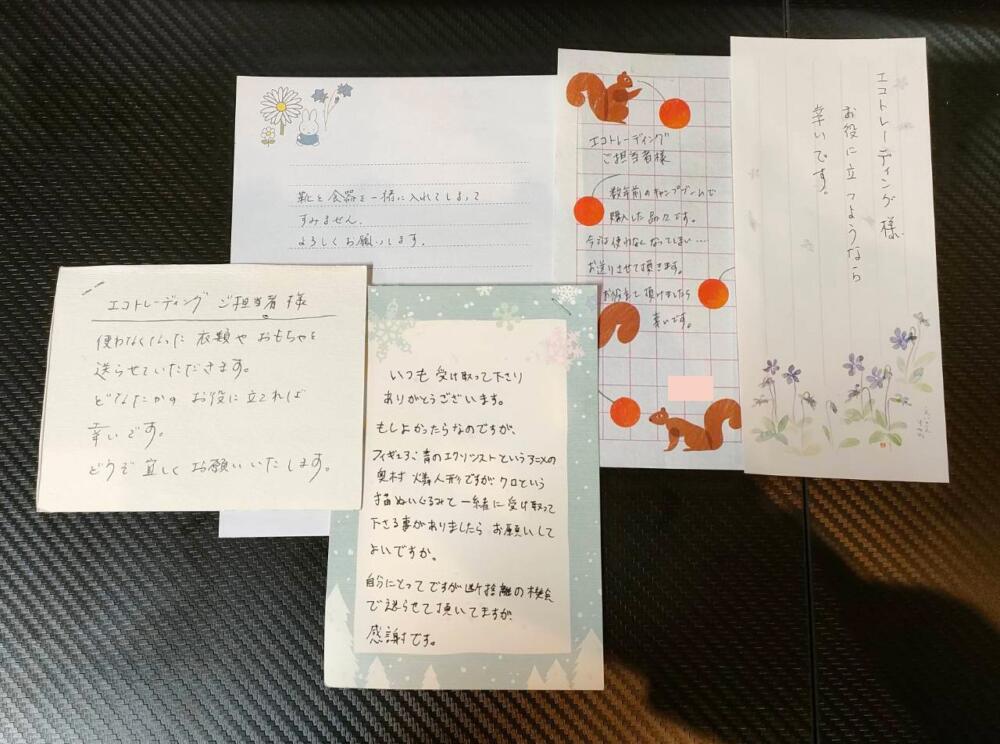 靴と食器を一緒に入れてしまって
すみません。
よろしくお願いします。
エコトレーディング
ご担当者様
数年前のキャンプブームで
購入した品々です。
今は使わなくなってしまい…
お送りさせて頂きます。
お役立て頂けましたら
幸いです。
エコトレーディング様
お役に立つようなら
幸いです。
エコトレーディング ご担当者様
使わなくなった衣類やおもちゃを
送らせていただきます。
どなたかのお役に立てれば
幸いです。
どうぞ宜しくお願いいたします。
いつも受け取って下さり
ありがとうございます。
もしよかったらなのですが、
フィギュア、青のエクソシストというアニメの
奥村 燐人形ですが、クロという
猫ぬいぐるみて一緒に受け取って
下さる事がありましたらお願いして
よいですか。
自分にとってですが断捨離の機会
で送らせて頂いてますが、
感謝です。